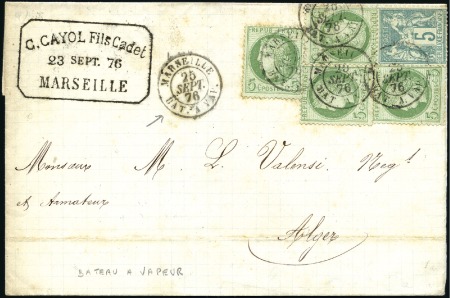 C. CAYOL Fils Cadet
23 SEPT. 76
MARSEILLE
MARSEILLE
25
SEPT.
76
BAT. A VAP.
5
5
5
5
SEPT.
76
Monsieur M. L. Valensi Negt
et Armateur
Alger
BATEAU A VAPEUR